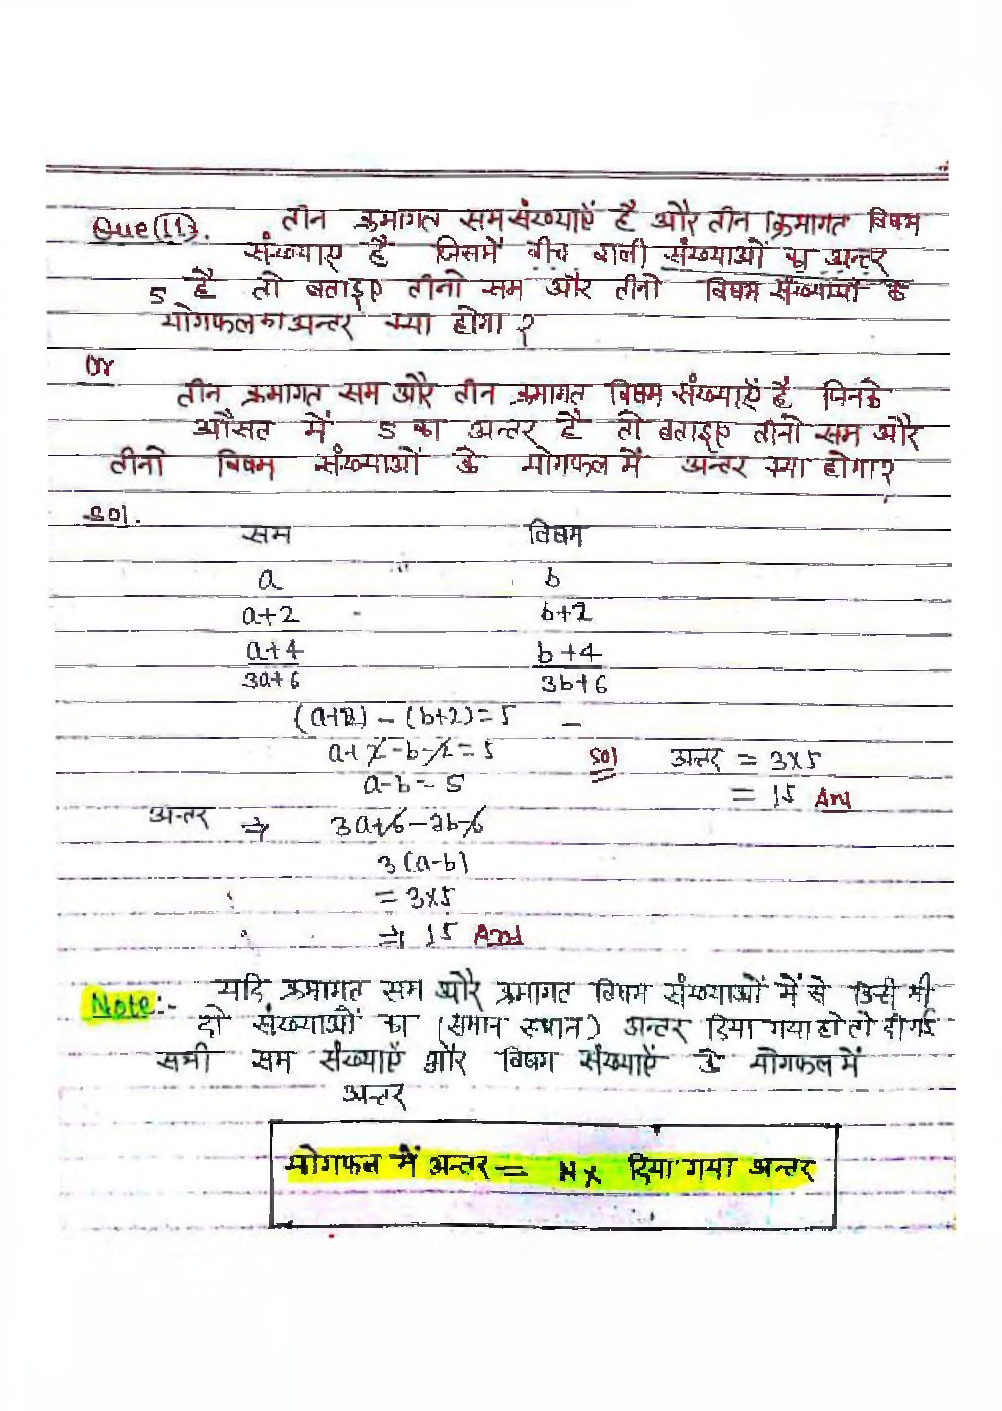 Que(11). तीन क्रमागत सम संख्याऐं है और तीन क्रिमागत विषम
संख्याए है जिसमें बीच वाली संख्याओं का अन्तर
5 है तो बताइए तीनो सम और तीनो विषम संख्याओं के
योगफल का अन्तर क्या होगा ?
Or
तीन क्रमागत सम और तीन क्रमागत विषम संख्याऐं है जिनके
औसत में 5 का अन्तर है तो बताइए तीनो सम और
तीनो विषम संख्याओं के योगफल में अन्तर क्या होगा ?
Sol.
सम विषम
a b
a+2 b+2
a+4 b+4
3a+6 3b+6
(a+2) - (b+2) = 5
a+2-b-2 = 5 Sol अन्तर = 3x5
a-b = 5 = 15 Ans
अन्तर ⇒ 3a+6-3b-6
3(a-b)
= 3x5
⇒ 15 Ans
Note:- यदि क्रमागत सम और क्रमागत विषम संख्याओं में से किन्ही भी
दो संख्याओं का (समान स्थान) अन्तर दिया गया हो तो दी गई
सभी सम संख्याएँ और विषम संख्याएँ के योगफल में
अन्तर
योगफल में अन्तर = N x दिया गया अन्तर